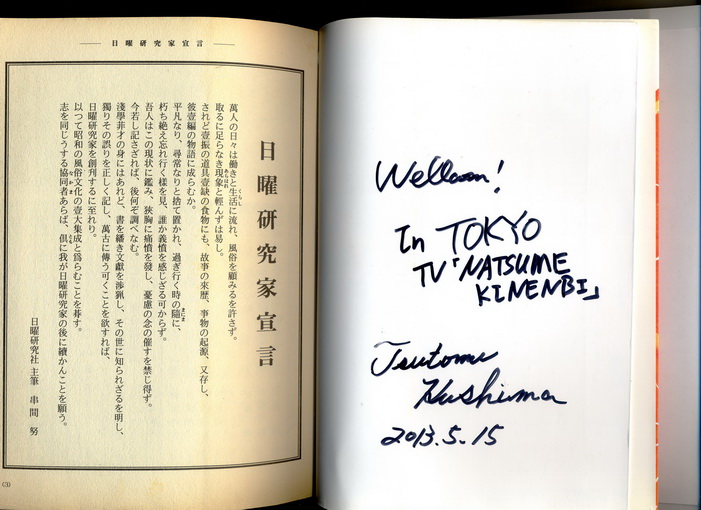 日曜研究家宣言
日曜研究家宣言
萬人の日々は働きと生活に流れ、風俗を顧みるを許さず。
取るに足らなき現象と輕んずは易し。
されど壹振の道具壹缺の食物にも、故事の來歴、事物の起源、又存し、
彼壹編の物語に成らむか。
平凡なり、尋常なりと捨て置かれ、過ぎ行く時の隨に、
朽ち絶え忘れ行く樣を見、誰か義憤を感じざる可からず。
吾人はこの現状に鑑み、狹胸に痛憤を發し、憂慮の念の催すを禁じ得ず。
今若し記さざれば、後何ぞ調べなむ。
淺學菲才の身にはあれど、書を繙き文獻を渉獵し、その世に知られざるを明し、
獨りその誤りを正しく記し、萬古に傳う可くことを欲すれば、
日曜研究家を創刊するに至れり。
以つて昭和の風俗文化の壹大集成と爲らむことを碁す。
志を同じうする協同者あらば、倶に我が日曜研究家の後に續かんことを願う。
日曜研究社 主筆 串間 努
(3)
Wellcom!
In TOKYO
TV「NATSUME
KINENBI」
Tsutomu
Kushima
2013.5.15